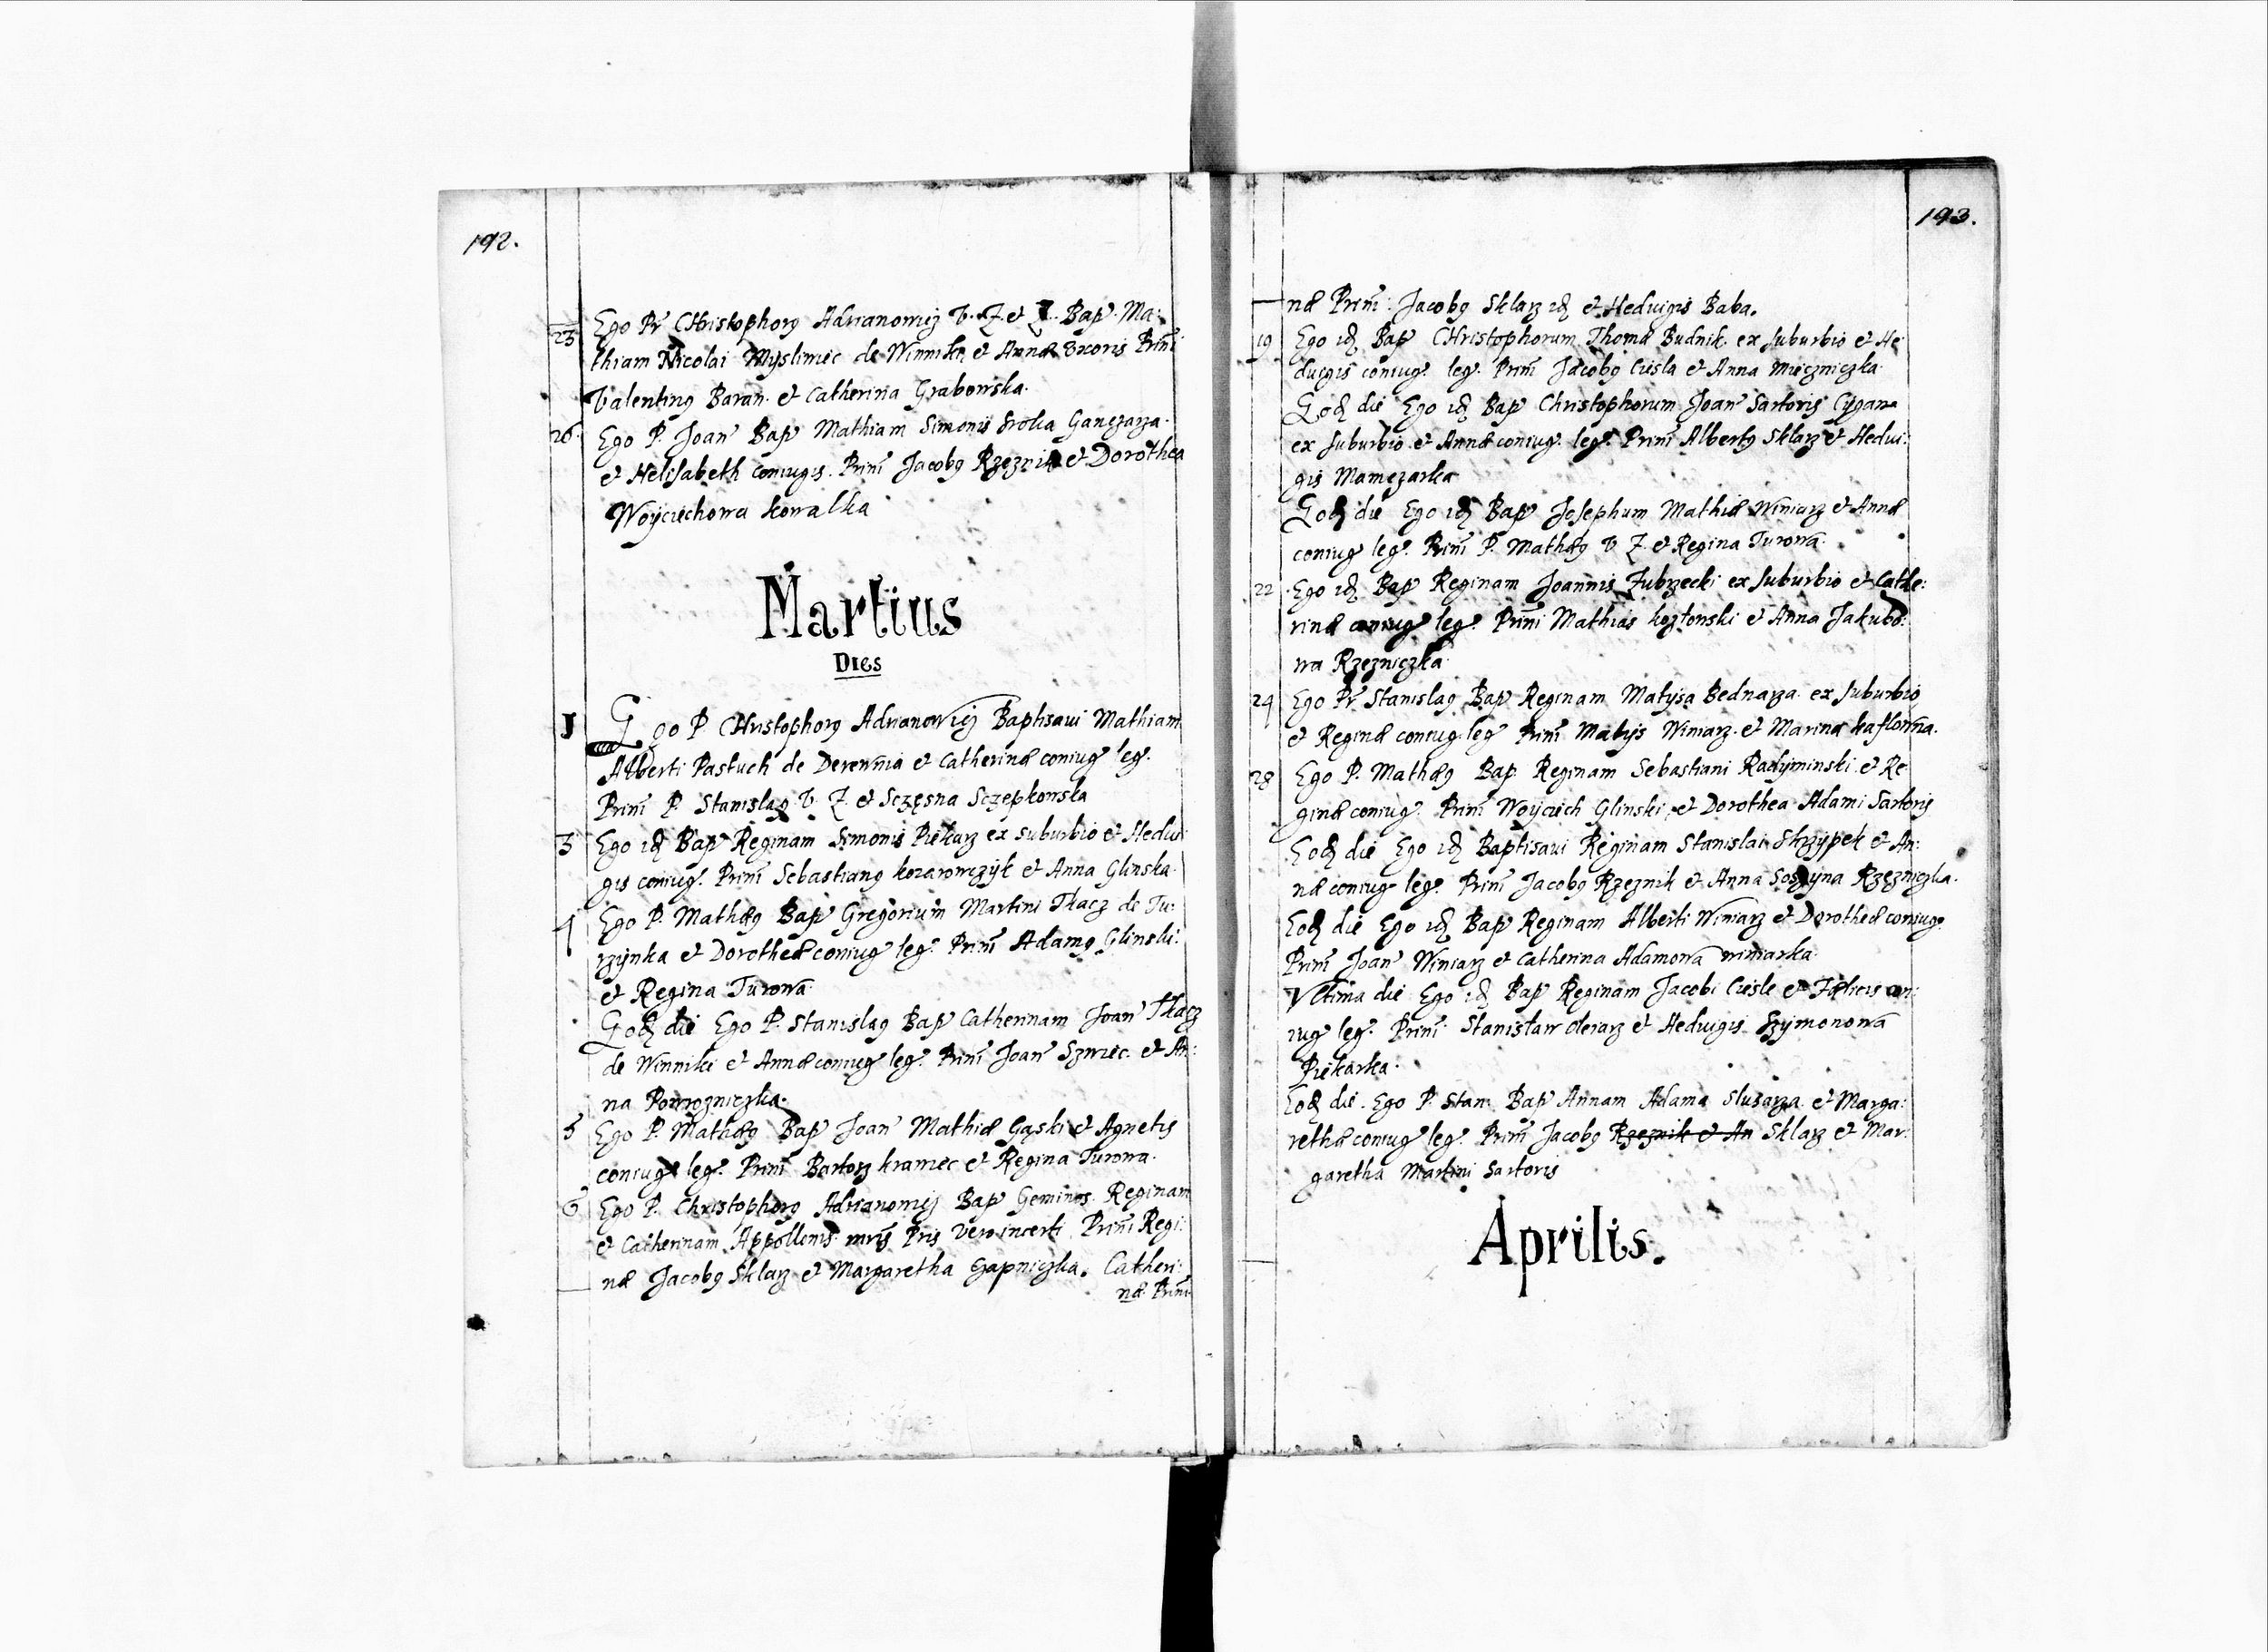 192.
23 Ego Pr Christophorg Adrianowicz V. Z. et Bap Ma:
thiam Nicolai Mysliwiec de Winniki et Annæ Uxoris Prini
Valenting Baran. et Catherina Grabowska.
26. Ego P. Joan Bap Mathiam Simonis Sroka Ganczarza.
et Helisabeth coniugis. Prini Jacobg Rzeznik et Dorothea
Woyciechowa kowalka
Martius
Dies
1 Ego P Christophorg Adrianowicz Baptisavi Mathiam
Alberti Pastuch de Derewnia et Catherinæ coniug leg.
Prini P. Stanislag V. Z. et Sczęsna Sczepkowska
3 Ego id Bap Reginam Simonis Piekarz ex suburbio et Hedvi
gis coniug. Prini Sebastiang kozarowczyk et Anna Glinska.
4 Ego P. Mathæg Bap Gregorium Martini Tkacz de Tu:
rzynka et Dorotheæ coniug leg. Prini Adamg Glinski:
et Regina Turowa.
Eod die Ego P. Stanislag Bap Catherinam Joan Tkacz
de Winniki et Annæ coniug leg. Prini Joan Szwiec. et An:
na Powrozniczka.
5 Ego P. Mathæg Bap Joan Mathiæ Gąski et Agnetis
coniug leg. Prini Bartosz kramec et Regina Turowa.
6 Ego P. Christophorg Adrianowicz Bap Geminos Reginam
et Catherinam Appollonis mris Pris vero incerti Prini Regi:
næ Jacobg Sklarz et Margaretha Gapniczka. Catheri:
næ Prini
193.
næ Prini: Jacobg Sklarz id et Hedvigis Baba.
19 Ego id Bap Christophorum Thoma Budnik ex suburbio et He
dvigis coniug. leg. Prini Jacobg Ciesla et Anna Mieczniczka
Eod die Ego id Bap Christophorum Joan Sartoris Cygana
ex suburbio et Annæ coniug. leg. Prini Albertg Sklarz et Hedvi:
gis Mamczarka
Eod die Ego id Bap Josephum Mathiæ Winiarz et Annæ
coniug leg. Prini P. Mathæg V Z. et Regina Turowa.
22 Ego id Bap Reginam Joannis Zubrzecki ex suburbio et Cathe:
rinæ coniug leg. Prini Mathias kozlowski et Anna Jakubo:
wa Rzezniczka
24 Ego Pr Stanislag Bap Reginam Matysa Bednarza ex suburbio
et Reginæ coniug leg Prini Matys Winiarz. et Marina kaflowna.
28 Ego P. Mathæg Bap Reginam Sebastiani Radyminski et Re
ginæ coniug. Prini Woyciech Glinski et Dorothea Adami Sartoris
Eod die Ego id Baptisavi Reginam Stanislai Skrzypek et An:
næ coniug leg. Prini Jacobg Rzeznik et Anna Rzęzniczka.
Eod die Ego id Bap Reginam Alberti Winiarz et Dorotheæ coniug.
Prini Joan Winiarz et Catherina Adamowa winiarka.
Ultima die Ego id Bap Reginam Jacobi Ciesle et con:
iug leg. Prini Stanisław oleiarz et Hedvigis Szymonowa
Piekarka.
Eod die. Ego P. Stan. Bap Annam Adama Slusarza et Marga:
rethæ coniug leg. Prini Jacobg Rzeznik et An Sklarz et Mar:
garetha Martini Sartoris
Aprilis.